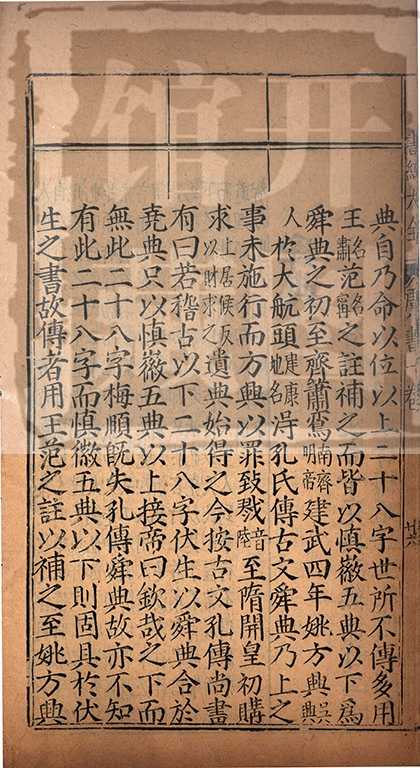 典自乃命以位以上二十八字世所不傳多用
王名肅范名寗之註補之而皆以慎徽五典以下爲
舜典之初至齊蕭鸞南齊明帝建武四年姚方興吳興
人於大航頭建康地名得孔氏傳古文舜典乃上之
事未施行而方興以罪致戮音陸至隋開皇初購
求上居候反以財求之遺典始得之今按古文孔傳尚書
有曰若稽古以下二十八字伏生以舜典合於
堯典只以慎徽五典以上接帝曰欽哉之下而
無此二十八字梅頤既失孔傳舜典故亦不知
有此二十八字而慎徽五典以下則固具於伏
生之書故傳者用王范之註以補之至姚方興